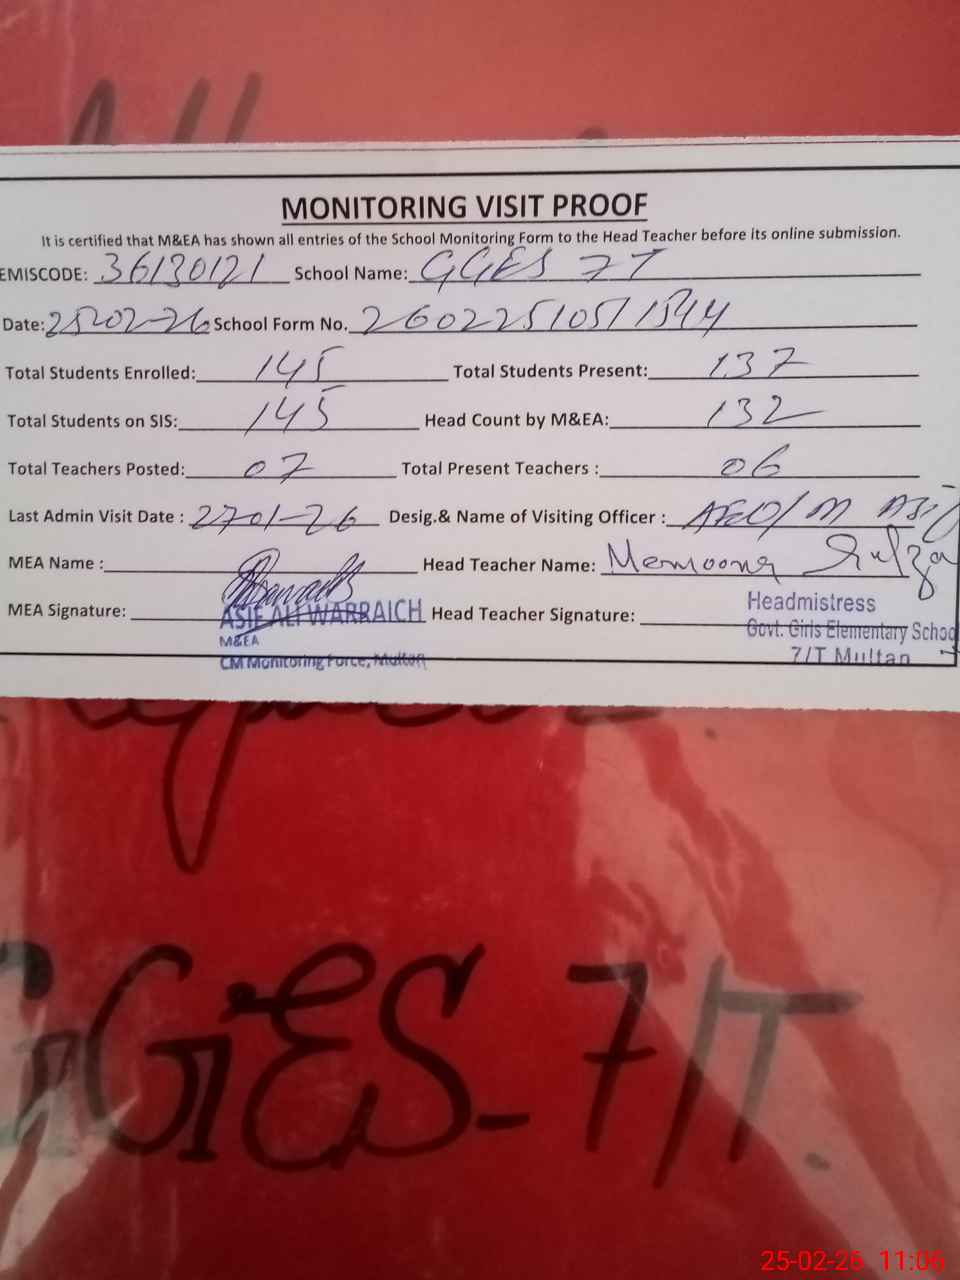 MONITORING VISIT PROOF
It is certified that M&EA has shown all entries of the School Monitoring Form to the Head Teacher before its online submission.
EMISCODE: 36130121 School Name: GGES 7T
Date: 25-02-26 School Form No. 26022510511544
Total Students Enrolled: 145 Total Students Present: 137
Total Students on SIS: 145 Head Count by M&EA: 132
Total Teachers Posted: 07 Total Present Teachers : 06
Last Admin Visit Date : 27-01-26 Desig.& Name of Visiting Officer : AEO/ M ASif
MEA Name : Head Teacher Name: Memoona
MEA Signature: ASIF ALI WARRAICH Head Teacher Signature: Headmistress
M&EA Govt. Girls Elementary School
CM Monitoring Force, Multan 7/T Multan
GGES-7/T.
25-02-26 11:06